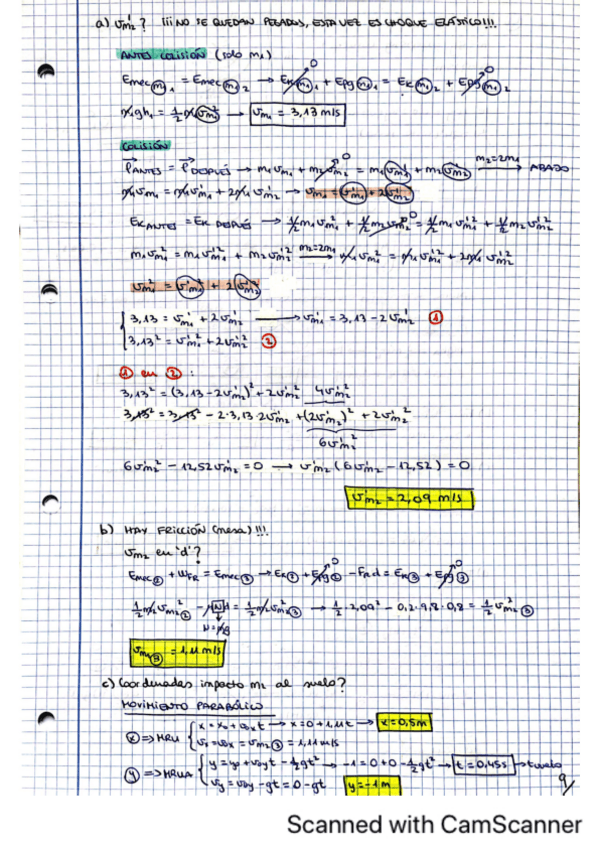 a) v'm₂? ¡¡¡ NO SE QUEDAN PEGADOS, ESTA VEZ ES CHOQUE ELÁSTICO!!!
ANTES COLISIÓN (solo m₁)
Emec(m₁)₁ = Emec(m₁)₂ → Ek(m₁)₁ 0 + Epg(m₁)₁ = Ek(m₁)₂ + Epg(m₁)₂ 0
m₁gh₁ = 1/2 m₁ v²m₁ → vm₁ = 3,13 m/s
COLISIÓN
PANTES = PDESPUÉS → m₁vm₁ + m₂vm₂ 0 = m₁v'm₁ + m₂v'm₂ m₂=2m₁ → ABAJO
m₁vm₁ = m₁v'm₁ + 2m₁v'm₂ → vm₁ = v'm₁ + 2v'm₂
Ek ANTES = Ek DESPUÉS → 1/2 m₁vm₁² + 1/2 m₂vm₂² 0 = 1/2 m₁v'm₁² + 1/2 m₂v'm₂²
m₁vm₁² = m₁v'm₁² + m₂v'm₂² m₂=2m₁ → m₁vm₁² = m₁v'm₁² + 2m₁v'm₂²
vm₁² = v'm₁² + 2v'm₂²
3,13 = v'm₁ + 2v'm₂ → v'm₁ = 3,13 - 2v'm₂ ①
3,13² = v'm₁² + 2v'm₂² ②
① en ② :
3,13² = (3,13 - 2v'm₂)² + 2v'm₂² 4v'm₂²
3,13² = 3,13² - 2·3,13·2v'm₂ + (2v'm₂)² + 2v'm₂²
6v'm₂²
6v'm₂² - 12,52v'm₂ = 0 → v'm₂(6v'm₂ - 12,52) = 0
v'm₂ = 2,09 m/s
b) HAY FRICCIÓN (mesa)!!!
vm₂ en 'd'?
Emec② + WFR = Emec③ → Ek② + Epg② 0 - FR·d = Ek③ + Epg③ 0
1/2 m₂vm₂²② - μNd = 1/2 m₂vm₂²③ → 1/2·2,09² - 0,2·9,8·0,8 = 1/2 vm₂²③
N = mg
vm₂③ = 1,11 m/s
c) Coordenadas impacto m₂ al suelo?
MOVIMIENTO PARABÓLICO
Ⓧ => MRU x = x₀ + v₀ₓt → x = 0 + 1,11t → x = 0,5m
vₓ = v₀ₓ = vm₂③ = 1,11 m/s
Ⓨ => MRUA y = y₀ + v₀yt - 1/2gt² → -1 = 0 + 0 - 1/2gt² → t = 0,45s → tvuelo
vy = v₀y - gt = 0 - gt y = -1m
9/
Scanned with CamScanner